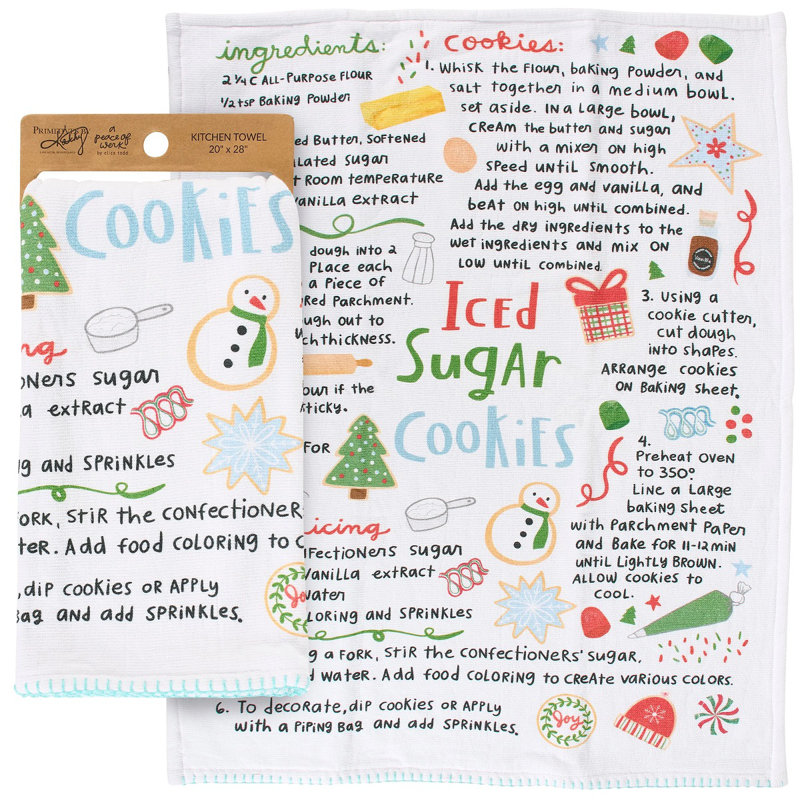 PRIMITIVES BY
Kathy
a peace of work!
by elisa todd
KITCHEN TOWEL
20" x 28"
COOKIES
ng
oners sugar
a extract
g and Sprinkles
fork, stir the confectioner
ter. Add food coloring to c
, dip cookies or apply
Bag and add sprinkles.
Joy
ingredients:
2 1/4 C All-Purpose Flour
1/2 tsp Baking Powder
ed Butter, Softened
ulated Sugar
t Room temperature
Vanilla extract
dough into 2
Place each
a Piece of
red Parchment.
ugh out to
ch thickness.
our if the
sticky.
for
icing
nfectioners sugar
Vanilla extract
Water
loring and Sprinkles
g a fork, stir the confectioners' sugar,
d water. Add food coloring to create various colors.
6. To decorate, dip cookies or apply
with a piping bag and add sprinkles.
cookies:
1. Whisk the flour, baking powder, and
salt together in a medium bowl.
set aside. In a large bowl,
cream the butter and sugar
with a mixer on high
speed until smooth.
Add the egg and vanilla, and
beat on high until combined.
Add the dry ingredients to the
wet ingredients and mix on
low until combined.
Vanilla
Iced
Sugar
Cookies
3. Using a
cookie cutter,
cut dough
into shapes.
Arrange cookies
on baking sheet.
4.
Preheat oven
to 350°
Line a large
baking sheet
with parchment paper
and bake for 11-12 min
until lightly brown.
Allow cookies to
cool.
Joy